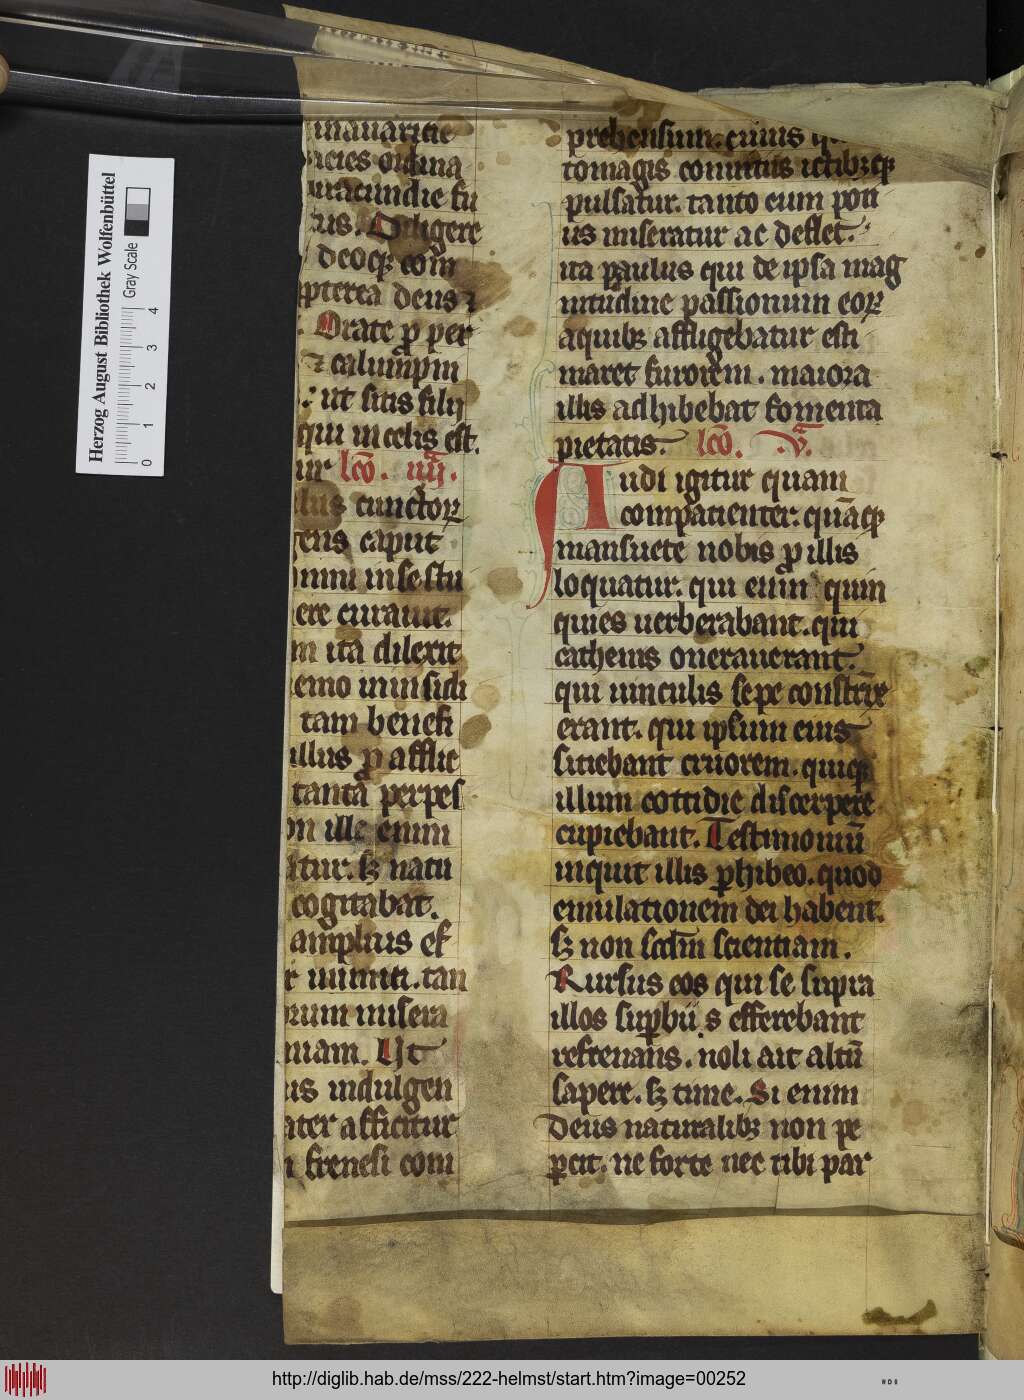 inauaricie
acies ordina
iracundie fu
tus. Diligere
deoqꝫ com̄
ꝓpterea deus ⁊
Orate ꝓ per
⁊ calumpm
ut sitis filij
qui in celis est.
ur lcō. iiij.
lus cunctoꝝ
gens caput
omni in se stu
ere curauit.
m ita dilexit
emo in insidi
tam benefi
illus ꝓ afflic
tanta perpes
on ille enim
atur. sꝫ natu
cogitabat.
amplius ef
r inimici. tan
orum misera
quam. Ut
us indulgen
ater afficitur
frenesi com
prehensum. cuius
tomagis conuitiis ictibꝫqꝫ
pulsatur. tanto eum poti
us miseratur ac deflet.
ita paulus qui de ipsa mag
nitudine passionum eoꝝ
aquibꝫ affligebatur esti
maret furorem. maiora
illis adhibebat fomenta
pietatis. lcō. .v.ᵃ
Audi igitur quam
compatienter. quāqꝫ
mansuete nobis ꝓ illis
loquatur. qui eum quin
quies uerberabant. qui
cathenis onerauerant.
qui uinculis sepe constrīxe
erant. qui ipsum eius
sitiebant cruorem. quiqꝫ
illum cottidie discerpere
cupiebant. Testimoniū
inquit illis ꝑhibeo. quod
emulationem dei habent.
sꝫ non scdm̄ scientiam.
Rursus eos qui se supra
illos suꝑbii s efferebant
refrenans. noli ait altū
sapere. sꝫ time. Si enim
deus naturalibꝫ non pe
ꝑcit. ne forte nec tibi par
Herzog August Bibliothek Wolfenbüttel
Gray Scale
0 1 2 3 4
http://diglib.hab.de/mss/222-helmst/start.htm?image=00252